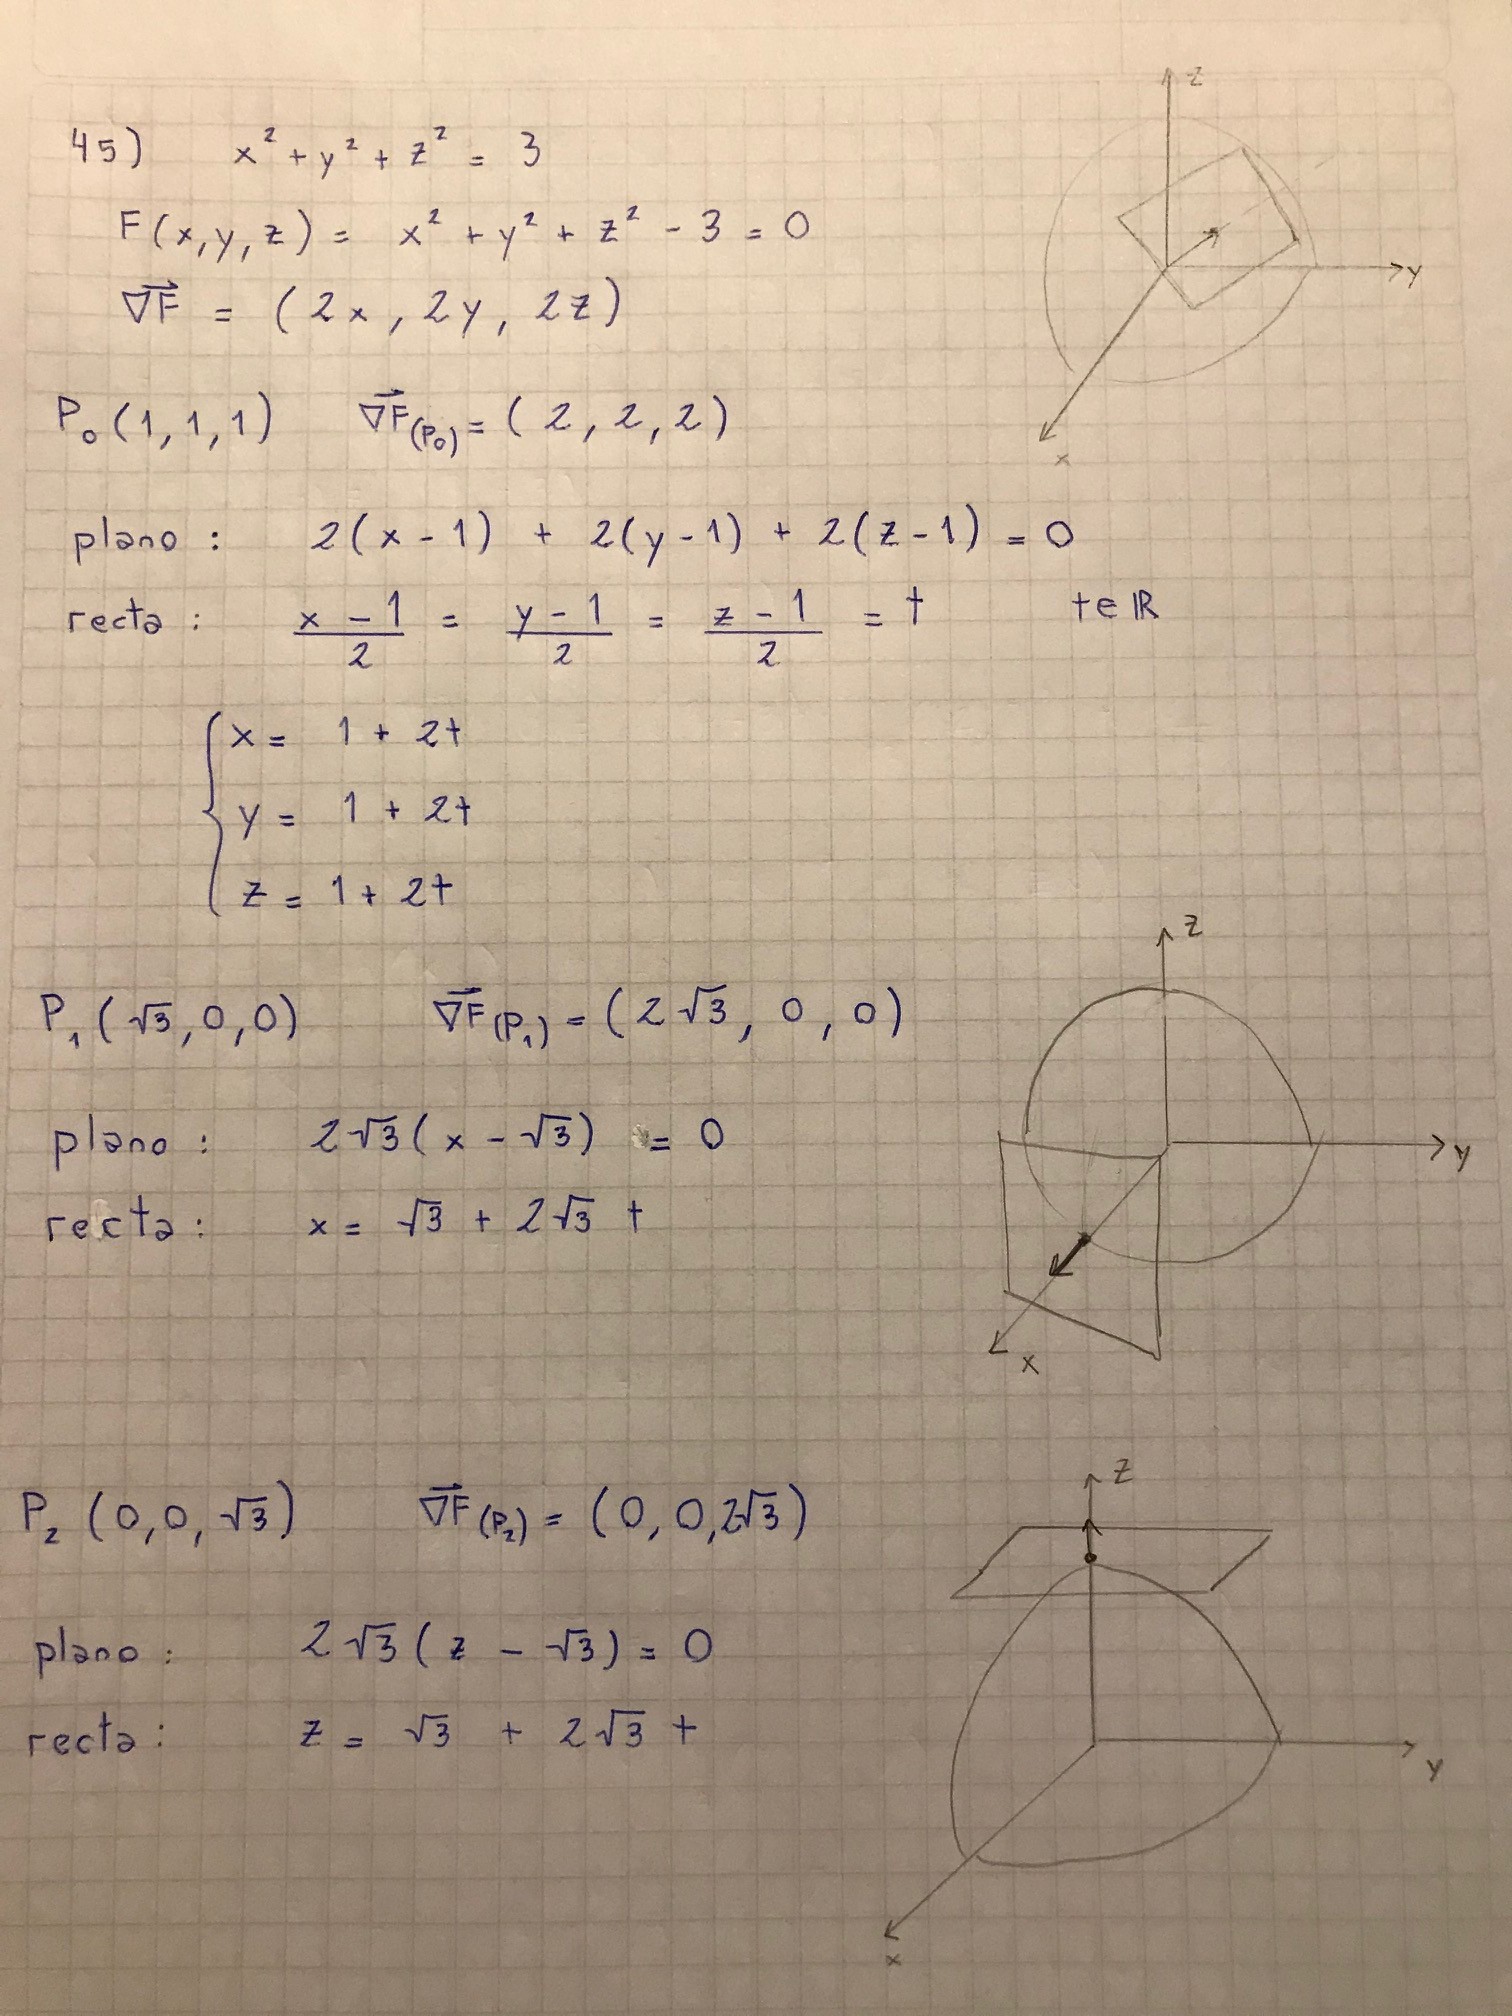 45) x² + y² + z² = 3
F(x,y,z) = x² + y² + z² - 3 = 0
∇F = (2x, 2y, 2z)
z
y
x
P₀(1,1,1) ∇F(P₀) = (2, 2, 2)
plano: 2(x-1) + 2(y-1) + 2(z-1) = 0
recta: (x-1)/2 = (y-1)/2 = (z-1)/2 = t t∈ℝ
x = 1 + 2t
y = 1 + 2t
z = 1 + 2t
P₁(√3,0,0) ∇F(P₁) = (2√3, 0, 0)
plano: 2√3(x - √3) = 0
recta: x = √3 + 2√3 t
z
y
x
P₂(0,0,√3) ∇F(P₂) = (0, 0, 2√3)
plano: 2√3(z - √3) = 0
recta: z = √3 + 2√3 t
z
y
x